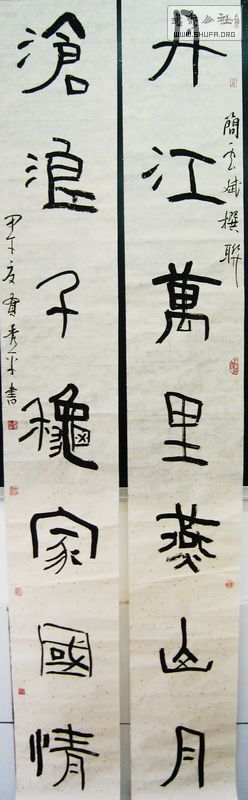 丹江萬里燕山月
簡雲斌撰聯
滄浪千穐家國情
甲午夏賈秀平書
書法公社
WWW.SHUFA.ORG